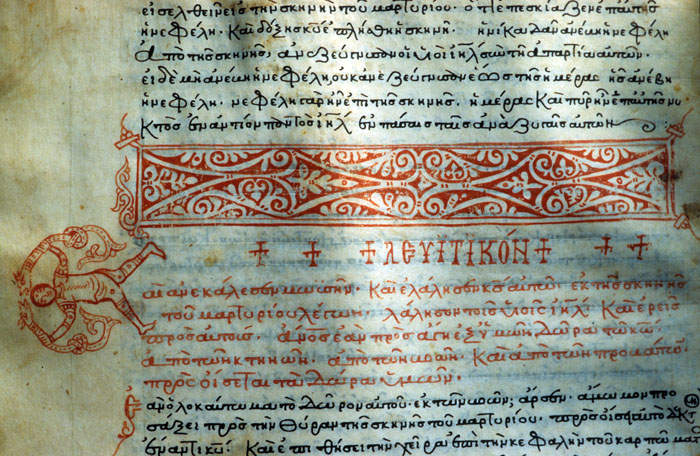 εἰσελθεῖν εἰς τὴν σκηνὴν τοῦ μαρτυρίου. ὅτι ἐπεσκίαζεν ἐπ' αὐτὴν
ἡ νεφέλη. καὶ δόξης κυ ἐπλήσθη ἡ σκηνή. ἡνίκα δ' ἂν ἀνέβη ἡ νεφέλη
ἀπὸ τῆς σκηνῆς, ἀνεζεύγνυσαν οἱ υἱοὶ ιηλ σὺν τῇ ἀπαρτία αὐτῶν.
εἰ δὲ μὴ ἀνέβη ἡ νεφέλη, οὐκ ἀνεζεύγνυσαν ἕως τῆς ἡμέρας ἧς ἀνέβη
ἡ νεφέλη. νεφέλη γὰρ ἦν ἐπὶ τῆς σκηνῆς. ἡμέρας καὶ πῦρ ἦν ἐπ' αὐτῆς νυ
κτὸς ἐναντίον παντὸς ιηλ ἐν πάσαις ταῖς ἀναζυγαῖς αὐτῶν
+ + + ΛΕΥΙΤΙΚΟΝ + + +
αὶ ἀνεκάλεσεν μωυσῆν. καὶ ἐλάλησεν κς αὐτῷ ἐκ τῆς σκηνῆς
τοῦ μαρτυρίου λέγων, λάλησον τοῖς υἱοῖς ιηλ. καὶ ἐρεῖς
πρὸς αὐτούς. ἄνος ἐὰν προσαγάγη ἐξ ὑμῶν δῶρα τῷ κω
ἀπὸ τῶν κτηνῶν. ἀπὸ τῶν βοῶν. καὶ ἀπὸ τῶν προβάτων
προσοίσεται τὰ δῶρα ὑμῶν.
Ἐὰν ὁλοκαύτωμα τὸ δῶρον αὐτοῦ. ἐκ τῶν βοῶν; ἄρσεν. ἄμωμον προ
σάξει πρὸς τὴν θύραν τῆς σκηνῆς τοῦ μαρτυρίου. προσοίσει αὐτὸ δεκτ
ὸν ἐναντι κυ. καὶ ἐπιθήσει τὴν χεῖρα ἐπὶ τὴν κεφαλὴν τοῦ καρπώματ